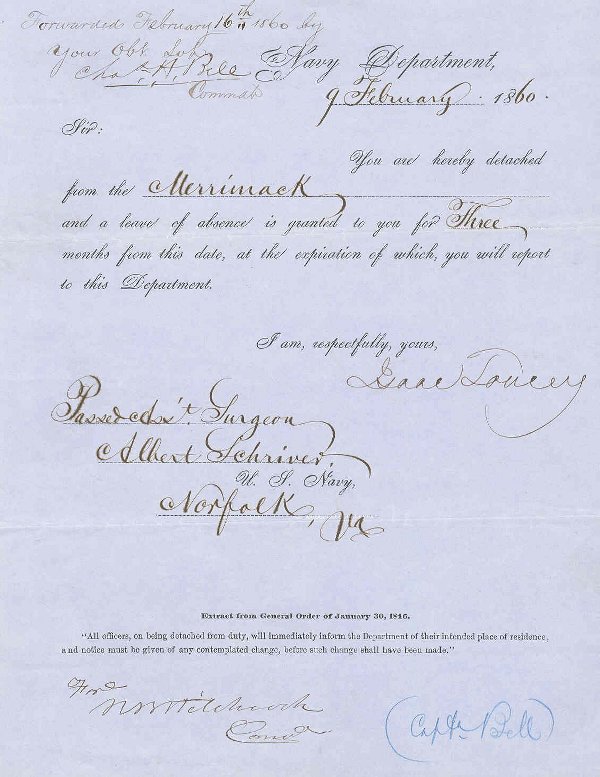 Forwarded February 16th 1860 by
Your Obt. Svt.
Chas. H. Bell
Commdt
Navy Department,
9 February 1860.
Sir:
You are hereby detached
from the Merrimack
and a leave of absence is granted to you for Three
months from this date, at the expiration of which, you will report
to this Department.
I am, respectfully, yours,
Isaac Toucey
Passed Asst. Surgeon
Albert Schriver,
U. S. Navy,
Norfolk, Va
Extract from General Order of January 30, 1816.
"All officers, on being detached from duty, will immediately inform the Department of their intended place of residence,
and notice must be given of any contemplated change, before such change shall have been made."
Ford
Hitchcock
Comdr
(Captn. Bell)